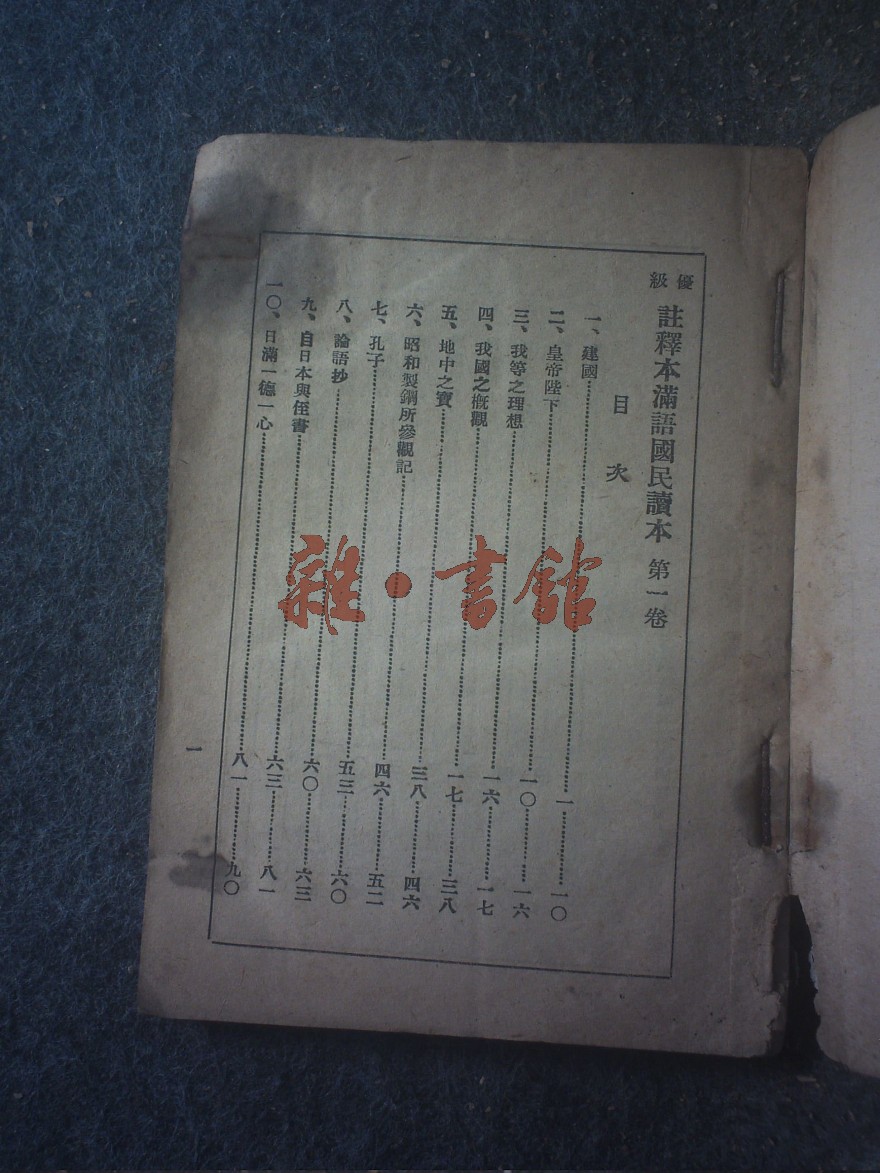 優級 註釋本滿語國民讀本 第一卷
目次
一、建國……一……一〇
二、皇帝陛下……一〇……一六
三、我等之理想……一六……一七
四、我國之概觀……一七……二八
五、地中之寶……三八……四六
六、昭和製鋼所參觀記……四六……五二
七、孔子……五三……六〇
八、論語抄……六〇……六三
九、自日本與侄書……六三……八一
一〇、日滿一德一心……八一……九〇
一
雜·書館